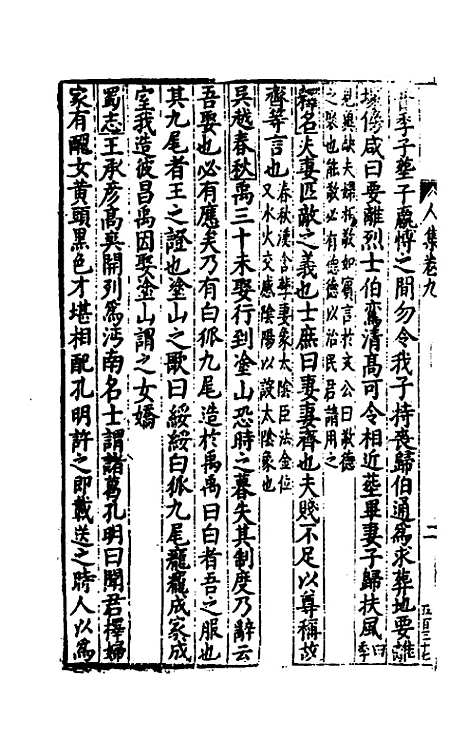 人集卷九
二
五百三十七
昔季子塟子嬴愽之間勿令我子持喪歸伯通爲求葬地要離
塜傍咸曰要離烈士伯鸞清高可令相近塟畢妻子歸扶風
曰季
見冀缺夫婦相敬如賓言於文公曰敬德
之聚也能敬必有德德以治民君請用之
釋名夫妻匹敵之義也士庶曰妻妻齊也夫賤不足以尊稱故
齊等言也
春秋漢含孳妻象太陰臣法金位
又水火交感陰陽以設太陰象也
吳越春秋禹三十未娶行到塗山恐時之暮失其制度乃辭云
吾娶也必有應矣乃有白狐九尾造於禹禹曰白者吾之服也
其九尾者王之證也塗山之歌曰綏綏白狐九尾龐龐成家成
室我造彼昌禹因娶塗山謂之女嬌
蜀志王承彦高爽開列爲沔南名士謂諸葛孔明曰聞君擇婦
家有醜女黄頭黒色才堪相配孔明許之即載送之時人以爲